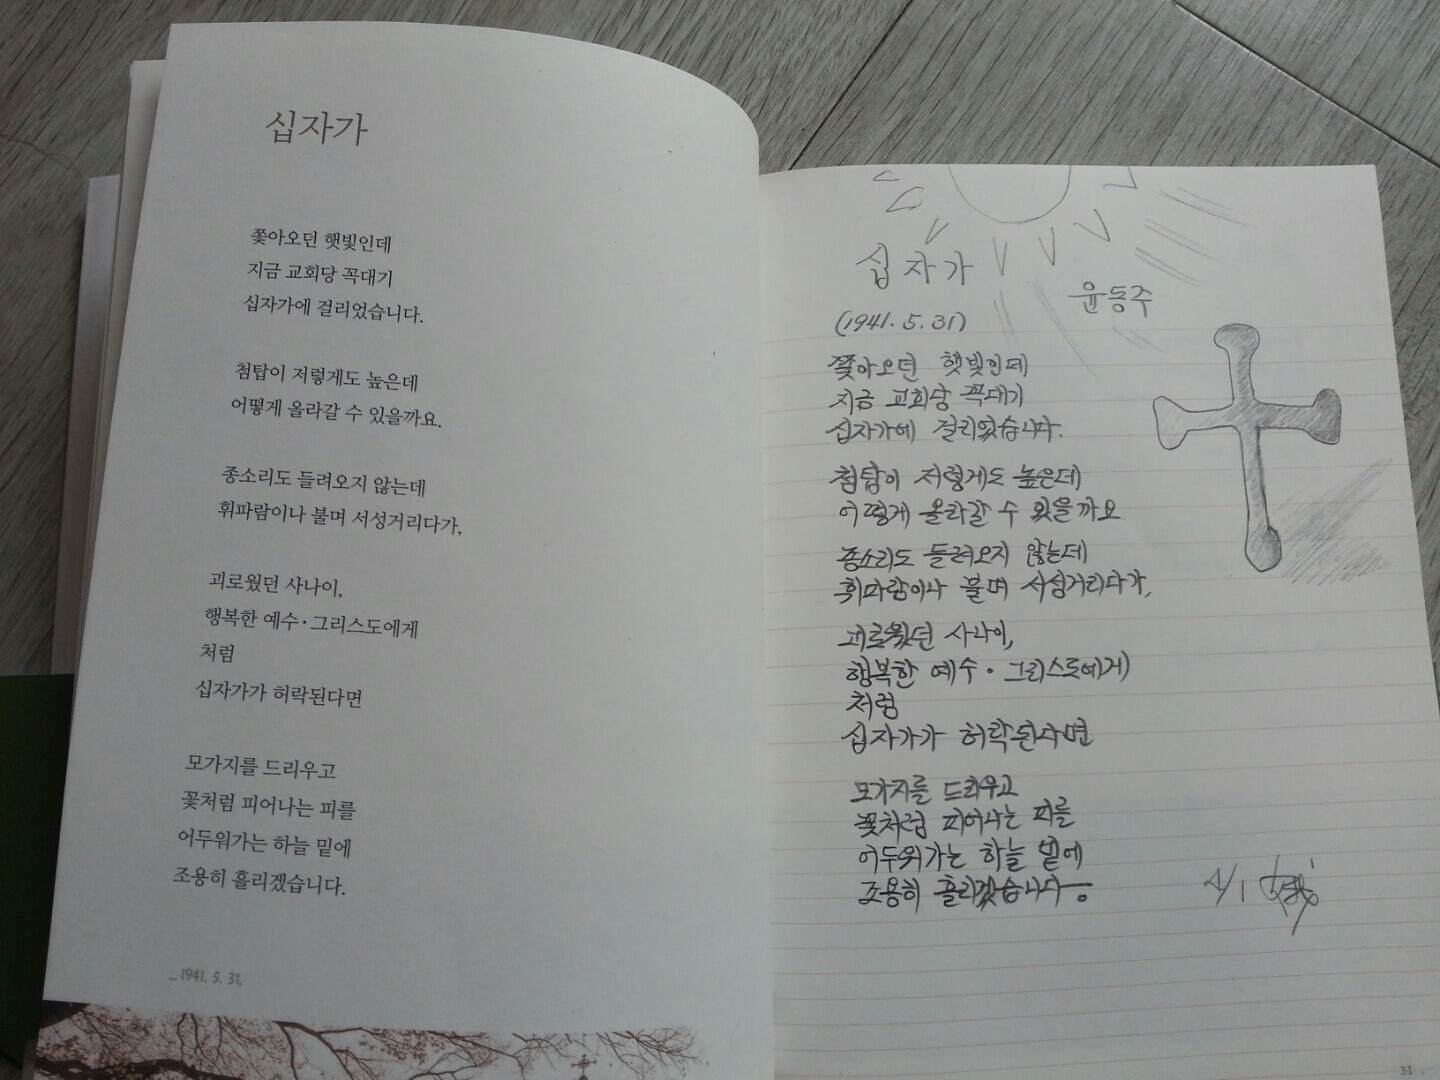 십자가
쫓아오던 햇빛인데
지금 교회당 꼭대기
십자가에 걸리었습니다.
첨탑이 저렇게도 높은데
어떻게 올라갈 수 있을까요.
종소리도 들려오지 않는데
휘파람이나 불며 서성거리다가,
괴로웠던 사나이,
행복한 예수·그리스도에게
처럼
십자가가 허락된다면
모가지를 드리우고
꽃처럼 피어나는 피를
어두워가는 하늘 밑에
조용히 흘리겠습니다.
_ 1941. 5. 31.
십자가
윤동주
(1941. 5. 31)
쫓아오던 햇빛인데
지금 교회당 꼭대기
십자가에 걸리었습니다.
첨탑이 저렇게도 높은데
어떻게 올라갈 수 있을까요
종소리도 들려오지 않는데
휘파람이나 불며 서성거리다가,
괴로웠던 사나이,
행복한 예수·그리스도에게
처럼
십자가가 허락된다면
모가지를 드리우고
꽃처럼 피어나는 피를
어두워가는 하늘 밑에
조용히 흘리겠습니다.
31